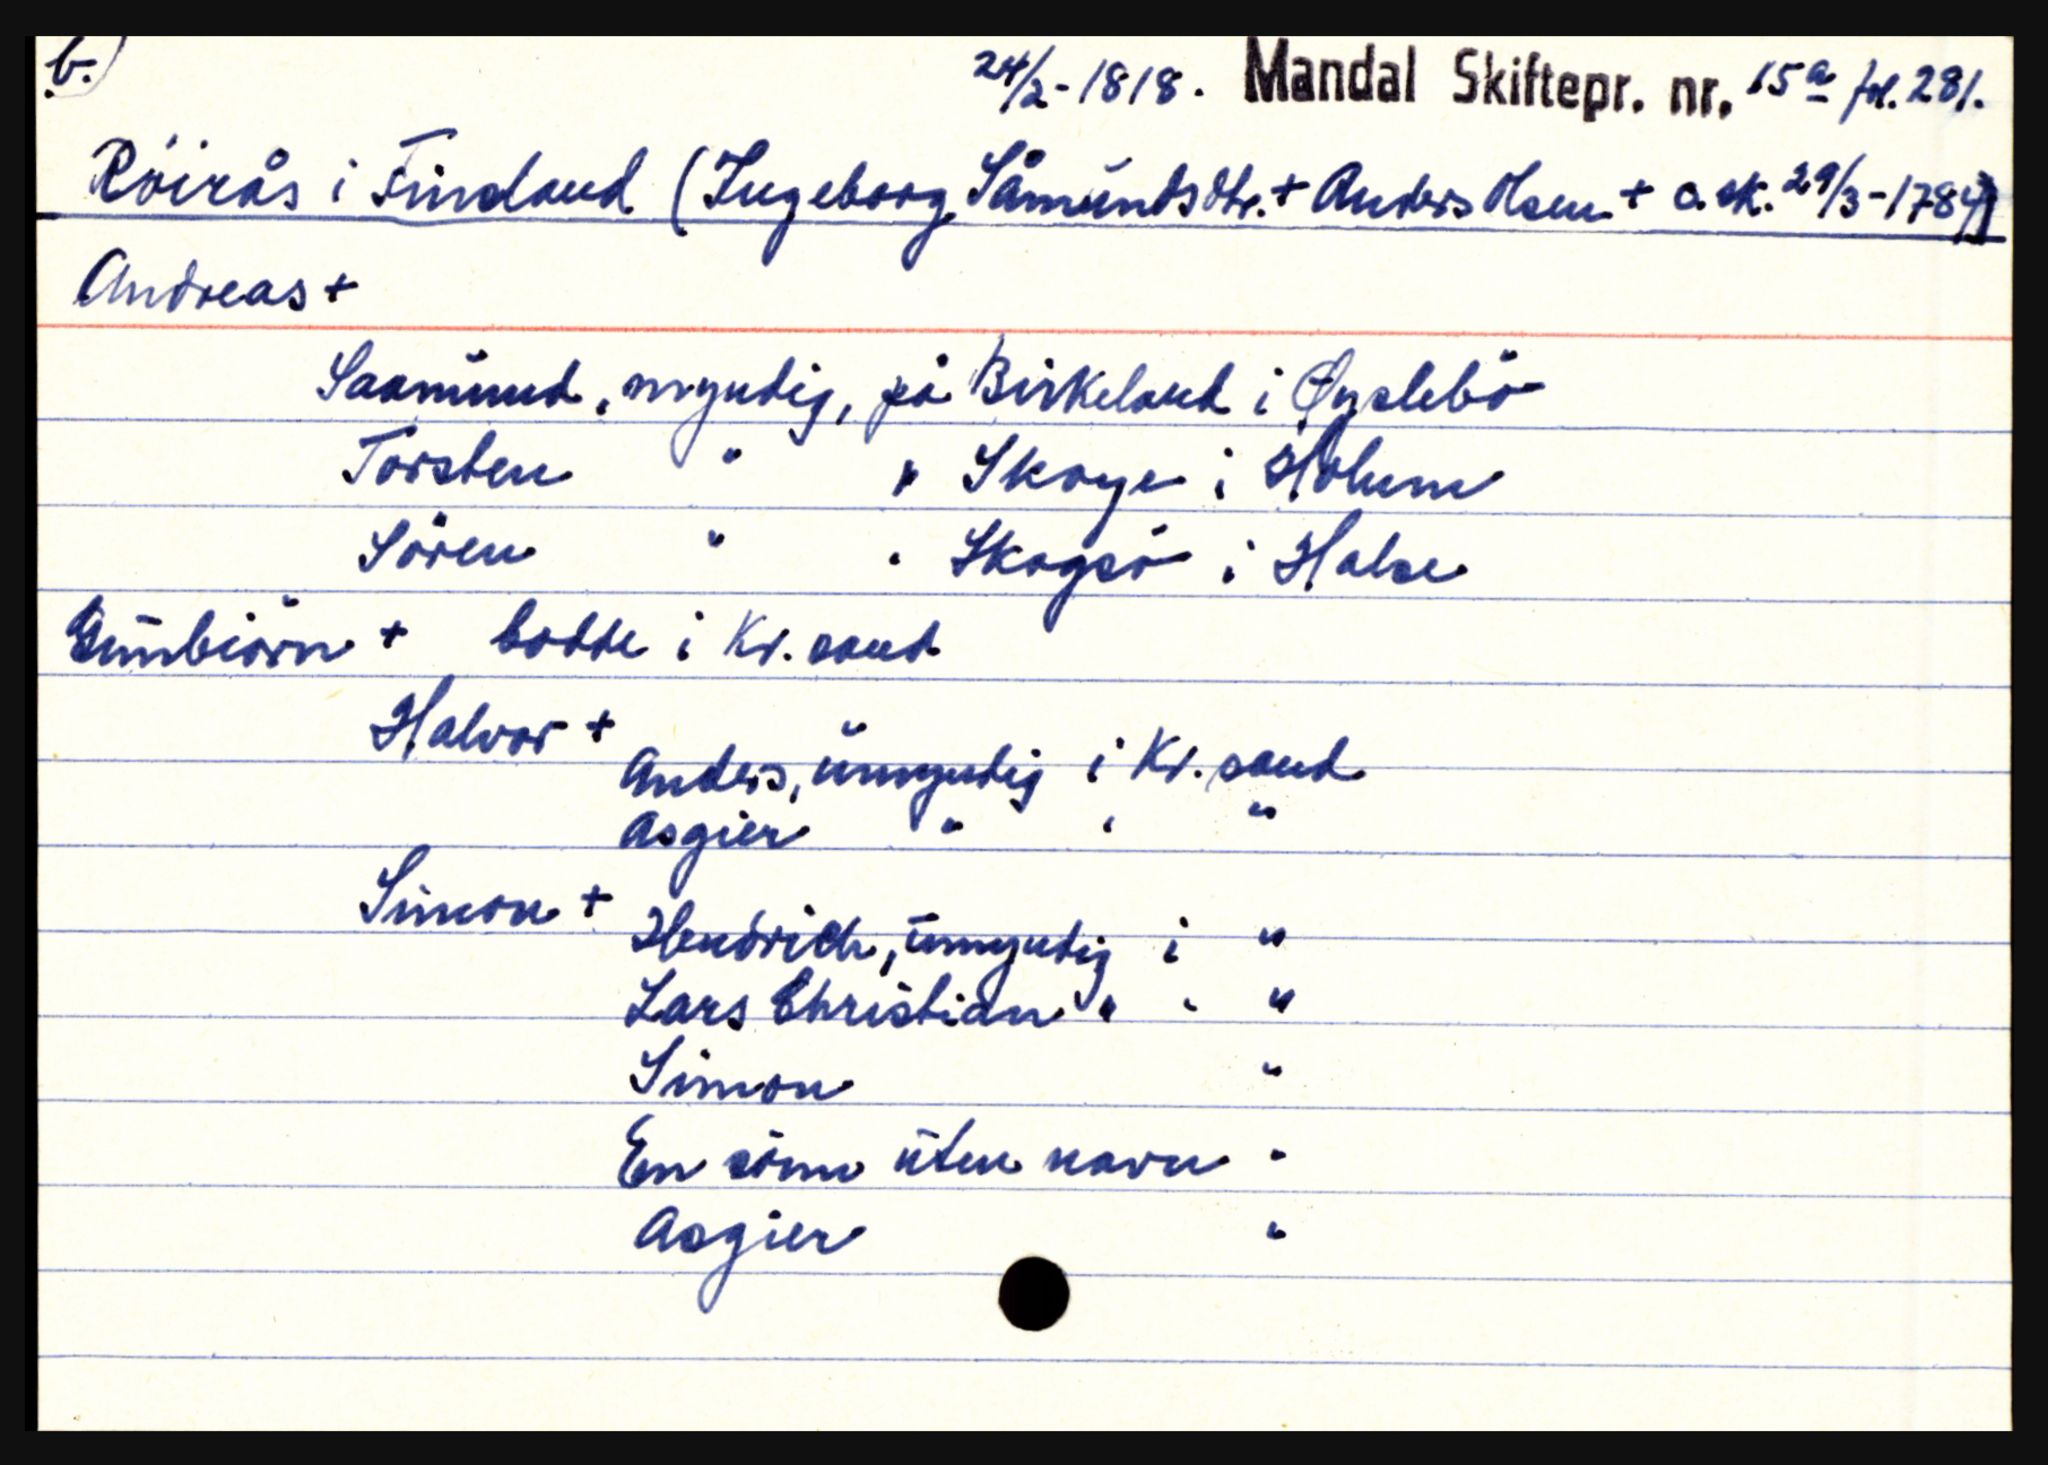 b.) 24/2-1818. Mandal Skiftepr. nr. 15a fol. 281.
Röirås i Finsland (Ingeborg Såmundsdtr. + Anders Olsen + o. sk. 29/3-1784)
Andreas +
Saamund, myndig, på Birkeland i Øyslebö
Torsten " " Skoye i Holum
Sören " " Skogsö i Halse
Gunbiörn + bodde i Kr. sand
Halvor +
Anders, umyndig i Kr. sand
Asgier " " "
Simon +
Hendrich, umyndig i "
Lars Christian " " "
Simon "
En sönn uten navn "
Asgier "